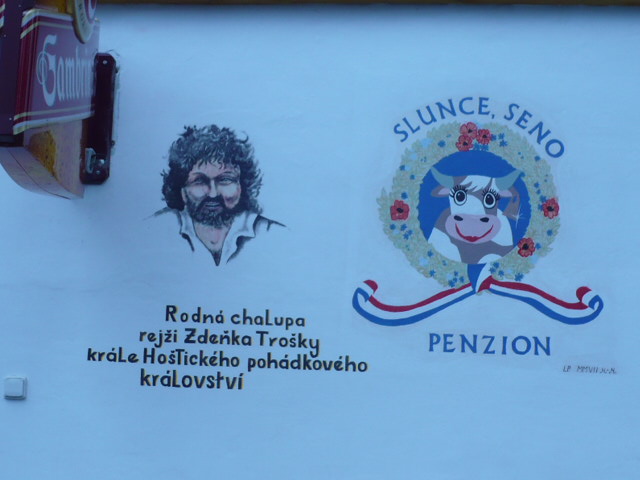 Gambrin
SLUNCE, SENO
PENZION
Rodná chaLupa
rejži Zdeňka Trošky
krále Hoštického pohádkového
království